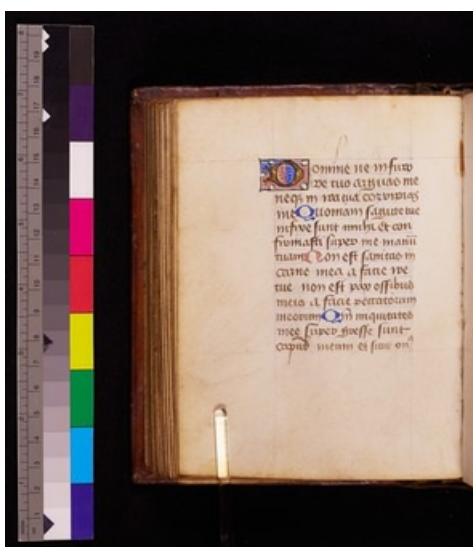 Domine ne in furo
re tuo arguas me
neqz in ira tua corripias
me Quoniam sagitte tue
infixe sunt michi et con
firmasti super me manū
tuam Non est sanitas in
carne mea a facie ire
tue non est pax ossibus
meis a facie peccatorum
meorum Qm̄ iniquitates
mee super gresse sunt
caput meum et sicut on